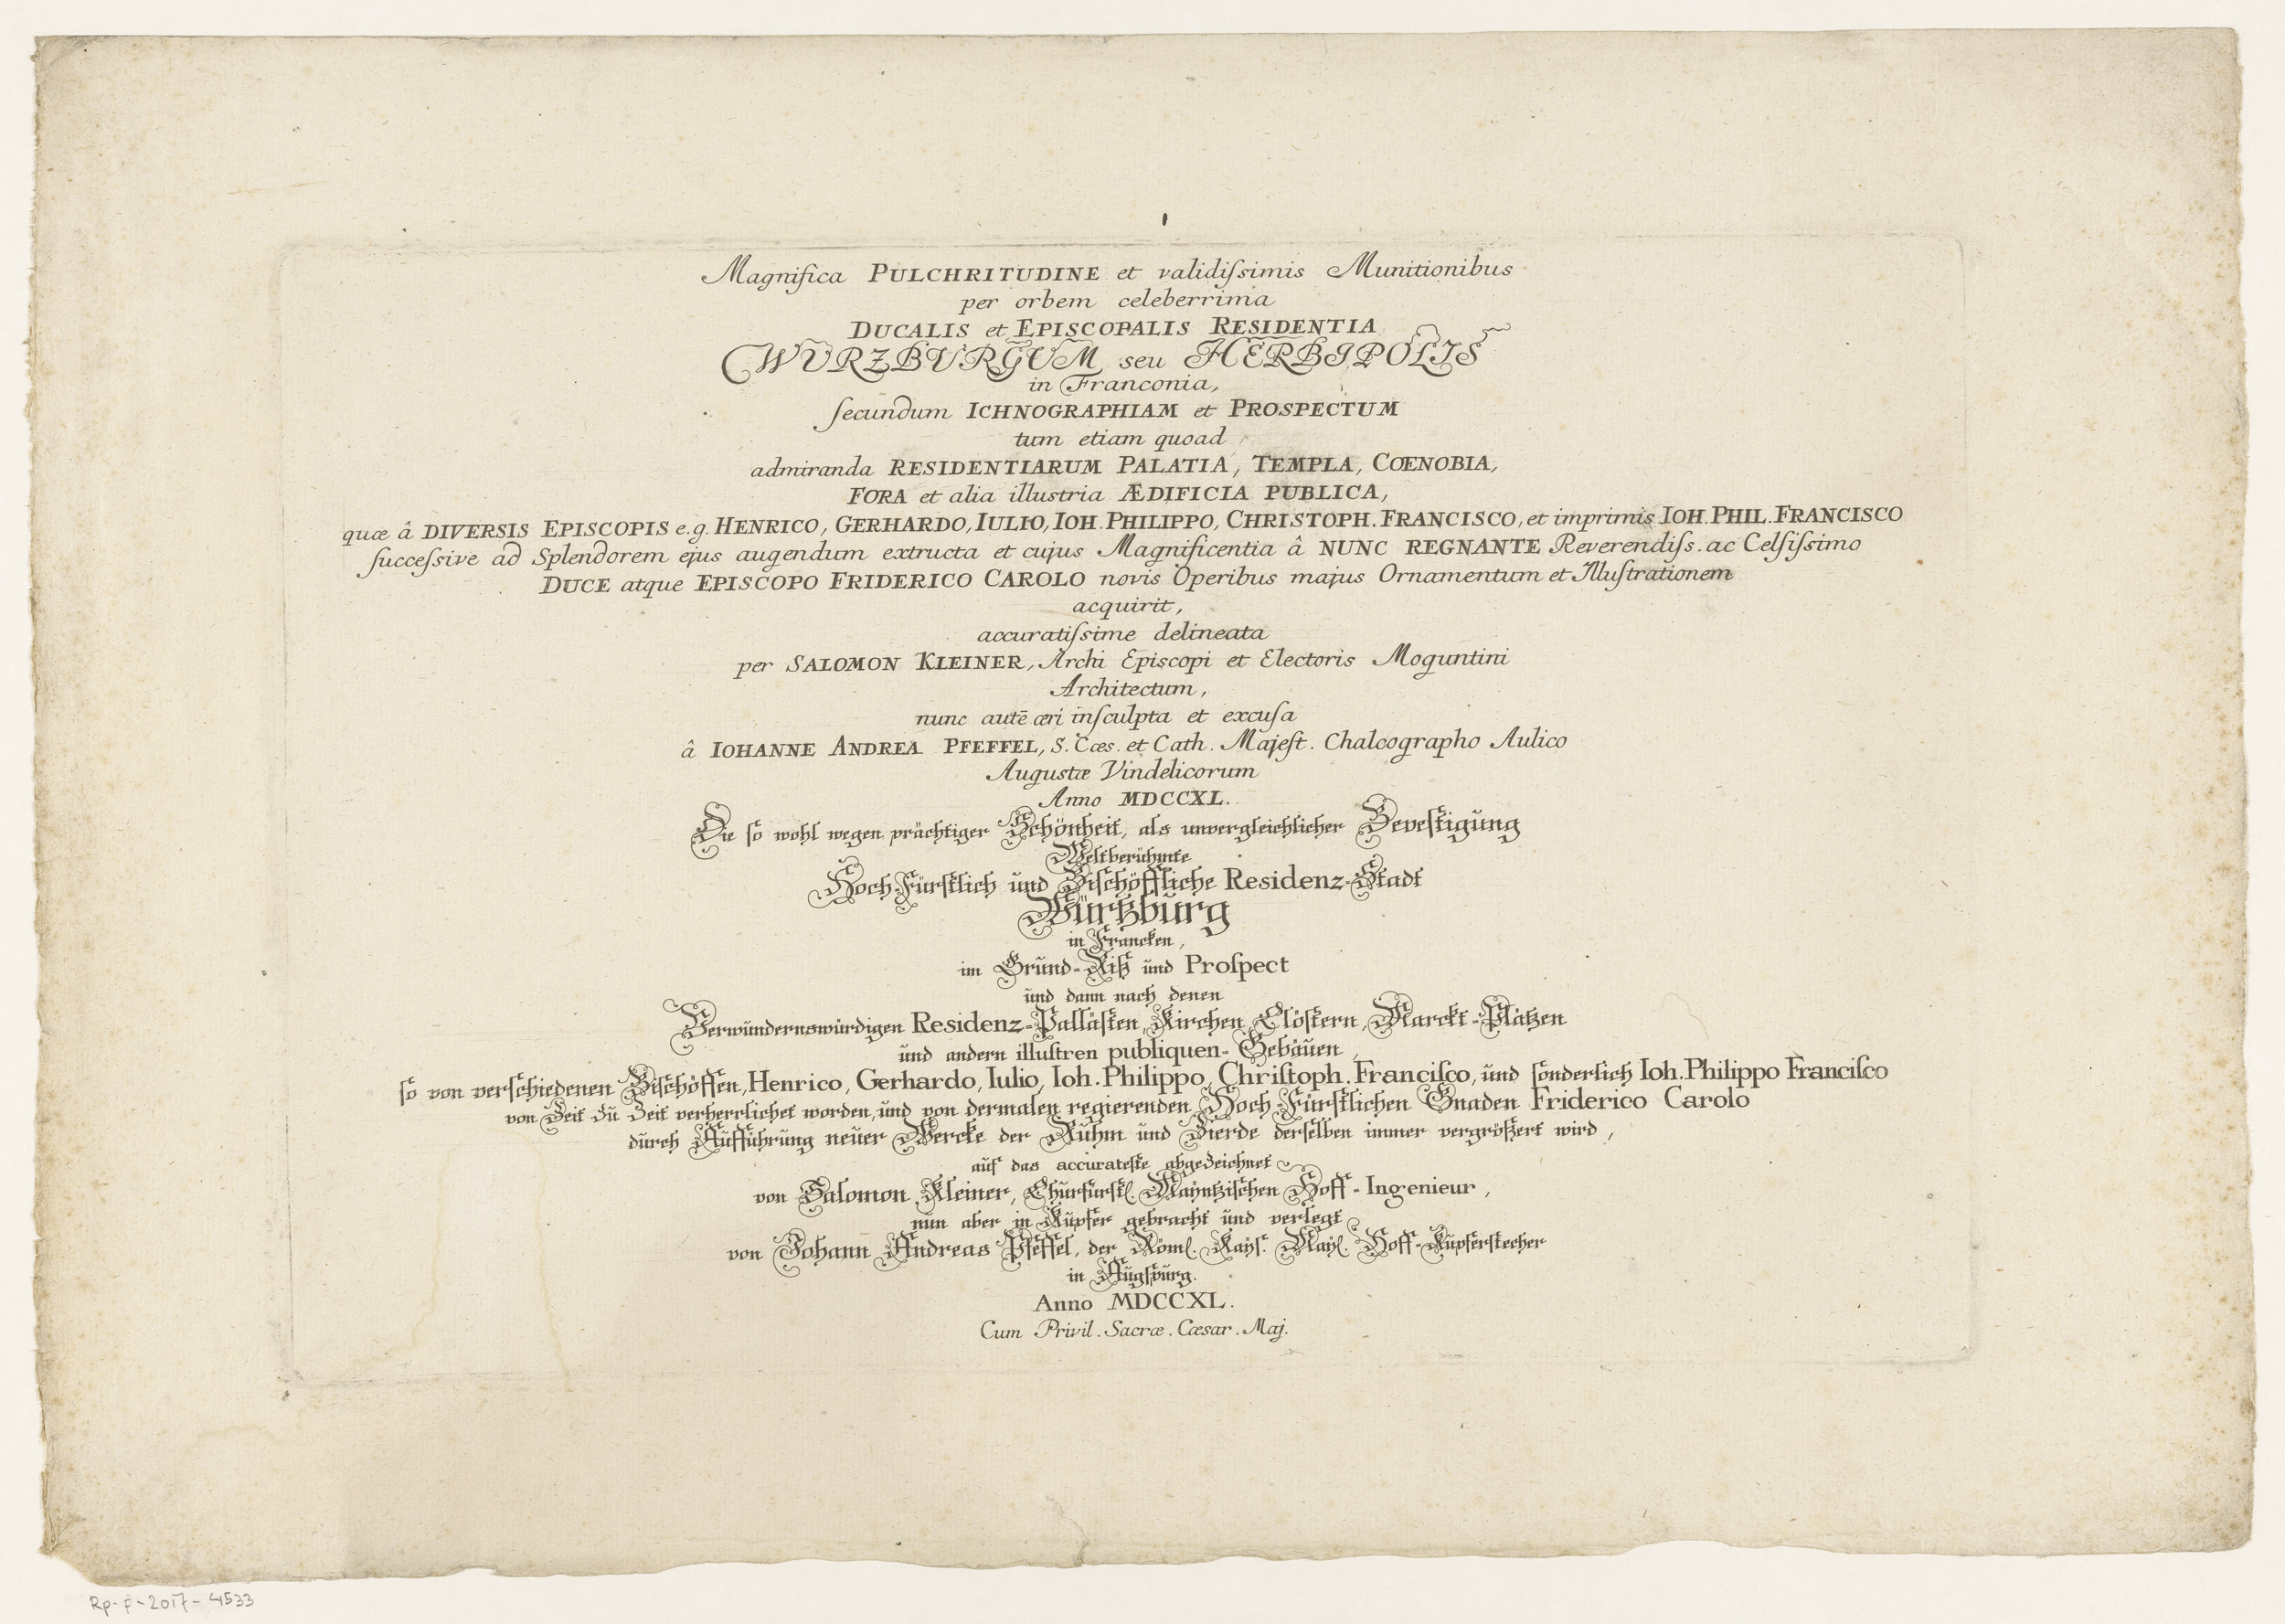 Magnifica PULCHRITUDINE et validiſsimis Munitionibus
per orbem celeberrima
DUCALIS et EPISCOPALIS RESIDENTIA
WURZBURGUM seu HERBIPOLIS
in Franconia,
ſecundum ICHNOGRAPHIAM et PROSPECTUM
tum etiam quoad
admiranda RESIDENTIARUM PALATIA, TEMPLA, COENOBIA,
FORA et alia illustria ÆDIFICIA PUBLICA,
quæ â DIVERSIS EPISCOPIS e.g. HENRICO, GERHARDO, IULIO, IOH. PHILIPPO, CHRISTOPH. FRANCISCO, et imprimis IOH. PHIL. FRANCISCO
ſucceſsive ad Splendorem ejus augendum extructa et cujus Magnificentia â NUNC REGNANTE Reverendiſs. ac Celſiſsimo
DUCE atque EPISCOPO FRIDERICO CAROLO novis Operibus majus Ornamentum et Illuſtrationem
acquirit,
accuratiſsime delineata
per SALOMON KLEINER, Archi Episcopi et Electoris Moguntini
Architectum,
nunc autē æri inſculpta et excuſa
â IOHANNE ANDREA PFEFFEL, S. Cæs. et Cath. Majeſt. Chalcographo Aulico
Augustæ Vindelicorum
Anno MDCCXL.
Die ſo wohl wegen prächtiger Schönheit, als unvergleichlicher Beveſtigung
Weltberühmte
Hoch-Fürſtlich und Biſchöffliche Residenz-Stadt
Würtzburg
in Francken,
im Grund-Riß und Proſpect
und dann nach denen
Verwundernswürdigen Residenz-Palläſten, Kirchen, Clöſtern, Marckt-Plätzen
und andern illuſtren publiquen-Gebäuen,
ſo von verſchiedenen Biſchöffen, Henrico, Gerhardo, Iulio, Ioh. Philippo, Chriſtoph. Franciſco, und ſonderlich Ioh. Philippo Franciſco
von Zeit zu Zeit verherrlichet worden, und von dermalen regierenden Hoch-Fürſtlichen Gnaden Friderico Carolo
durch Aufführung neuer Wercke der Ruhm und Zierde derſelben immer vergröſzert wird,
auf das accurateſte abgezeichnet
von Salomon Kleiner, Churfürſtl. Mayntziſchen Hoff-Ingenieur,
nun aber in Kupfer gebracht und verlegt
von Johann Andreas Pfeffel, der Röml. Kayſ. Mayl. Hoff-Kupferſtecher
in Augſpurg.
Anno MDCCXL.
Cum Privil. Sacræ. Cæsar. Maj.
Rp-P-2017-4533